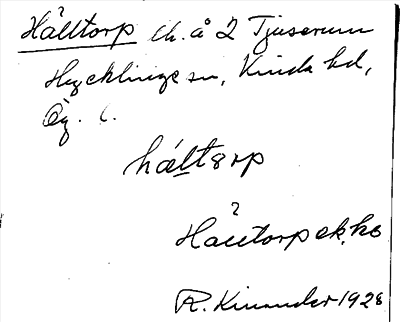 Hälltorp lh. å 2 Tjuserum
Hycklinge sn, Kinda hd,
Ög. l.
hál̲tørp
?
Hälltorp ek. kb
R. Kinander 1928